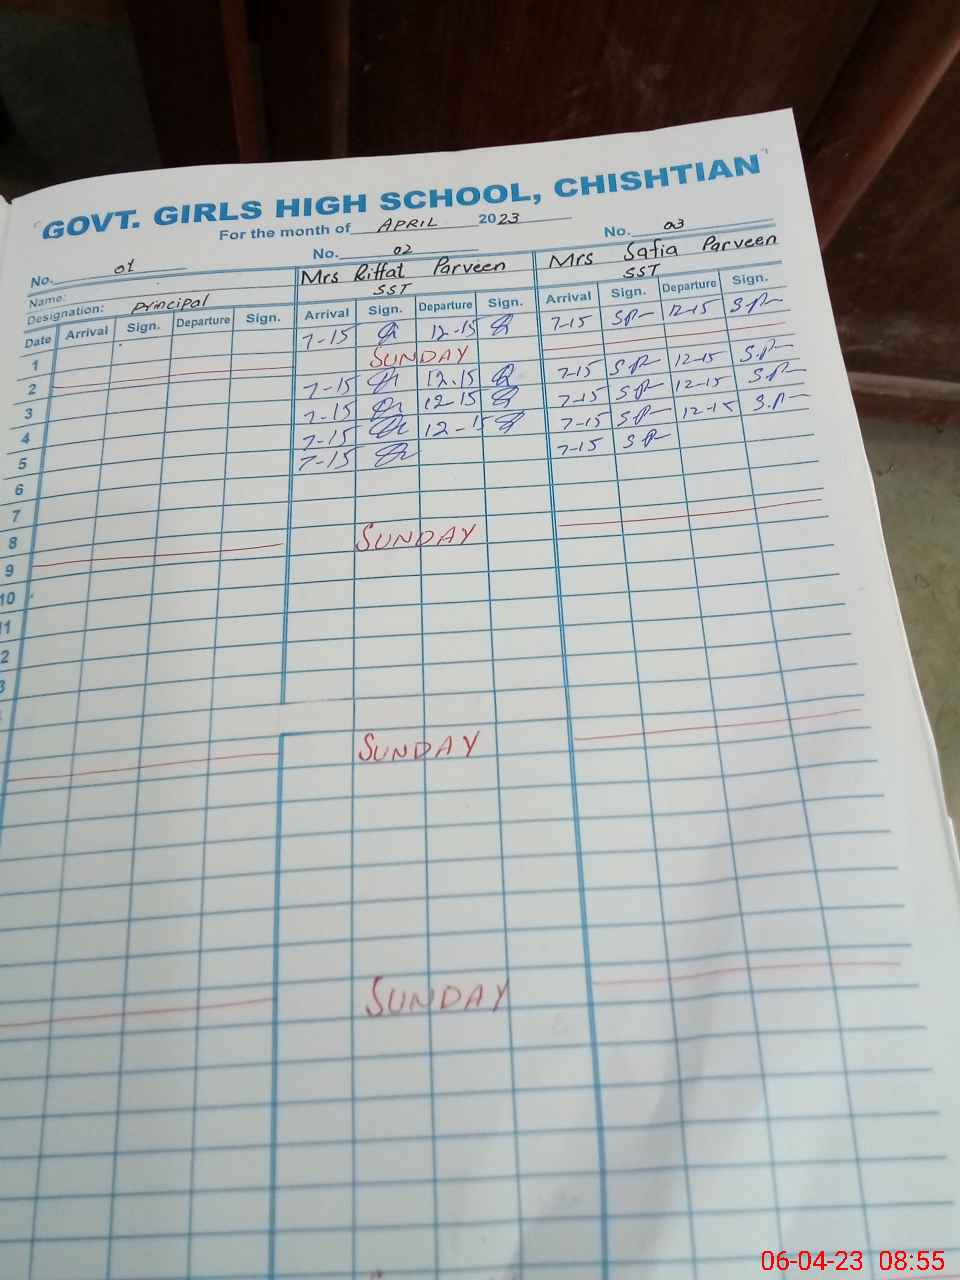 GOVT. GIRLS HIGH SCHOOL, CHISHTIAN
For the month of APRIL 2023
No. 01 No. 02 No. 03
Name: Mrs Riffat Parveen Mrs Safia Parveen
Designation: Principal SST SST
Date Arrival Sign. Departure Sign. Arrival Sign. Departure Sign. Arrival Sign. Departure Sign.
1 7-15 12-15 7-15 SP 12-15 S.P
2 SUNDAY
3 7-15 12.15 7-15 S.P 12-15 S.P
4 7-15 12-15 7-15 SP 12-15 S.P
5 7-15 12-15 7-15 SP 12-15 S.P
6 7-15 7-15 SP
7
8
9 SUNDAY
10
11
2
3
SUNDAY
SUNDAY
06-04-23 08:55